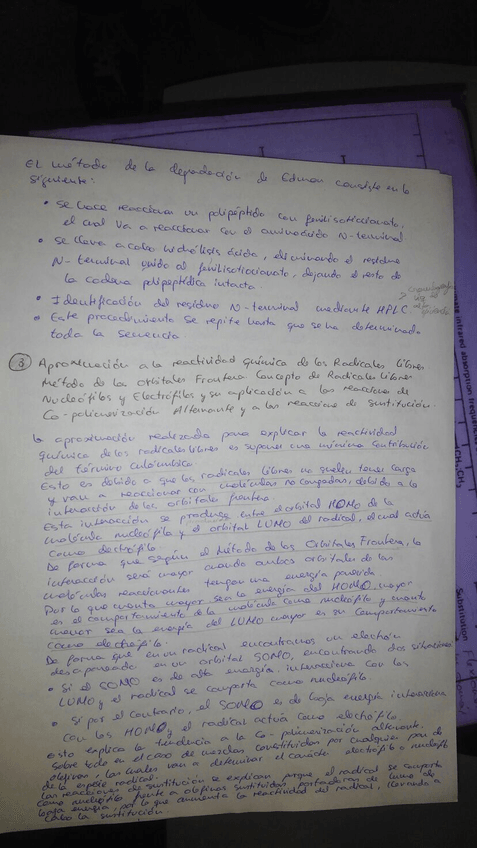 El método de la degradación de Edman consiste en lo
siguiente:
• Se hace reaccionar un polipéptido con fenilisotiocianato,
el cual va a reaccionar con el aminoácido N-terminal
• Se lleva a cabo hidrólisis ácida, eliminando el residuo
N-terminal unido al fenilisotiocianato, dejando el resto de
la cadena polipeptídica intacta.
• Identificación del residuo N-terminal mediante HPLC.
• Este procedimiento se repite hasta que se ha determinado
toda la secuencia
③ Aproximación a la reactividad química de los Radicales Libres
Método de los Orbitales Frontera. Concepto de Radicales Libres
Nucleófilos y Electrófilos y su aplicación a las reacciones de
Co-polimerización Alternante y a las reacciones de Sustitución.
La aproximación realizada para explicar la reactividad
química de los radicales libres es suponer una mínima contribución
del término culómbico.
Esto es debido a que los radicales libres no suelen tener carga
y van a reaccionar con moléculas no cargadas, debido a la
interacción de los orbitales frontera.
Esta interacción se produce entre el orbital HOMO de la
molécula nucleófila y el orbital LUMO del radical, el cual actúa
como electrófilo.
De forma que según el Método de los Orbitales Frontera, la
interacción será mayor cuando ambos orbitales de las
moléculas reaccionantes tengan una energía parecida
Por lo que cuanto mayor sea la energía del HOMO mayor
es el comportamiento de la molécula como nucleófilo y cuanto
menor sea la energía del LUMO mayor es su comportamiento
como electrófilo.
De forma que en un radical encontramos un electrón
desapareado en un orbital SOMO, encontrando dos situaciones
• Si el SOMO es de alta energía interacciona con los
LUMO y el radical se comporta como nucleófilo.
• Si por el contrario, el SOMO es de baja energía interacciona
con los HOMO y el radical actúa como electrófilo.
Esto explica la tendencia a la Co-polimerización alternante.
Sobre todo en el caso de mezclas constituidas por cualquier par de
olefinas, las cuales van a determinar el carácter electrófilo o nucleófilo
de la especie radical.
Las reacciones de sustitución se explican porque el radical se comporta
como nucleófilo frente a olefinas sustituidas portadoras de LUMO de
baja energía, por lo que aumenta la reactividad del radical, llevando a
cabo la sustitución.
infrared absorption frequenc
CH₂, CH₃
Substitution